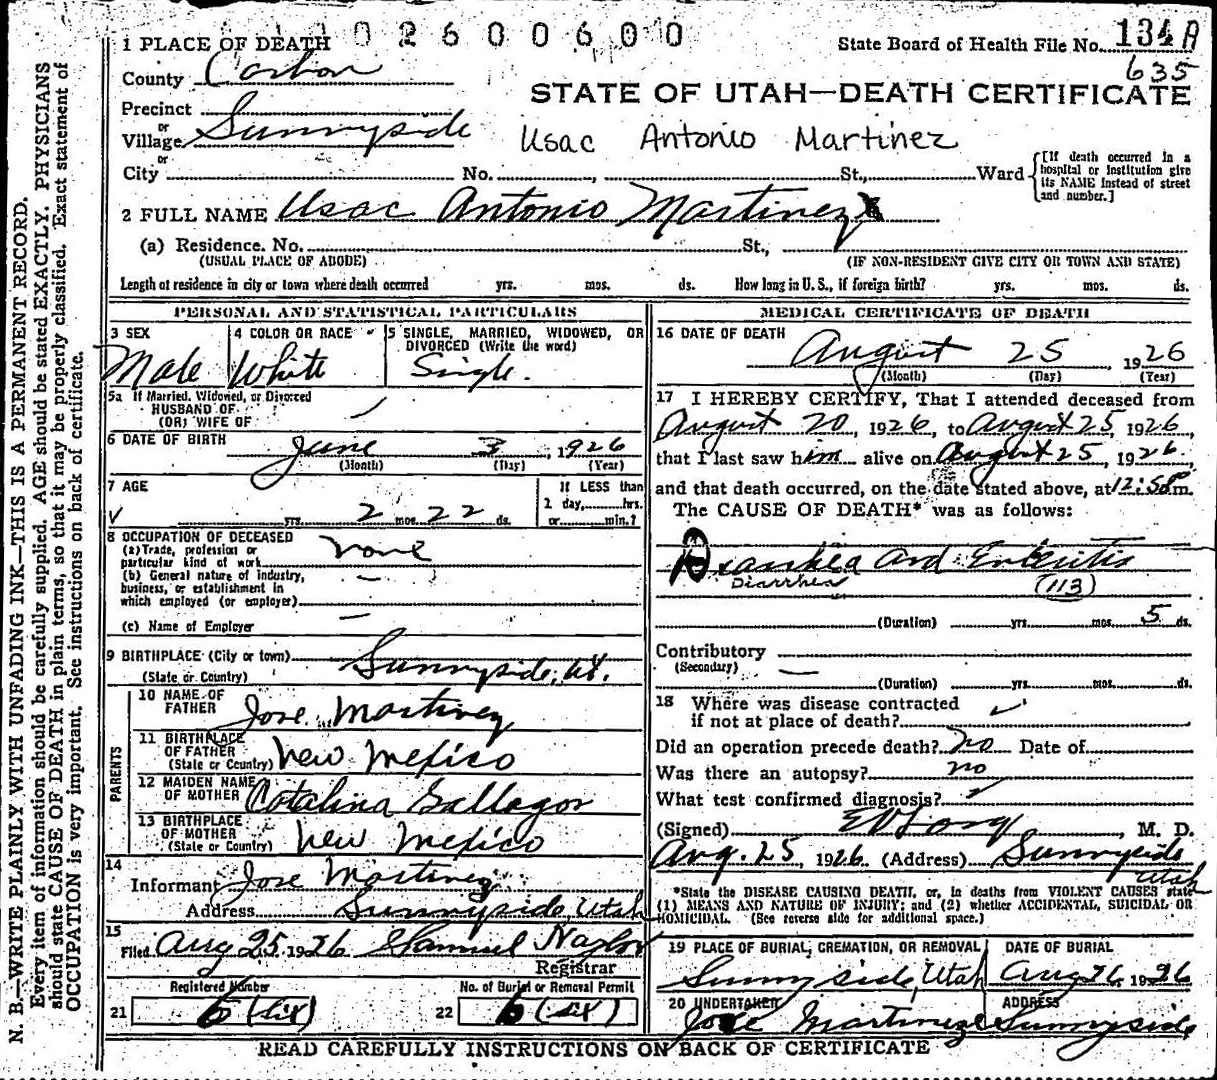 1026006 00
1 PLACE OF DEATH State Board of Health File No. 134A
County Carbon 635
STATE OF UTAH—DEATH CERTIFICATE
Precinct
or
Village Sunnyside Usac Antonio Martinez
or
City No. , St., Ward [If death occurred in a hospital or institution give its NAME instead of street and number.]
2 FULL NAME Usac Antonio Martinez
(a) Residence. No. St.,
(USUAL PLACE OF ABODE) (IF NON-RESIDENT GIVE CITY OR TOWN AND STATE)
Length of residence in city or town where death occurred yrs. mos. ds. How long in U. S., if foreign birth? yrs. mos. ds.
PERSONAL AND STATISTICAL PARTICULARS
3 SEX
Male
4 COLOR OR RACE
White
5 SINGLE, MARRIED, WIDOWED, OR
DIVORCED (Write the word)
Single.
5a If Married, Widowed, or Divorced
HUSBAND OF
(OR) WIFE OF
6 DATE OF BIRTH
June 3, 1926
(Month) (Day) (Year)
7 AGE
yrs. 2 mos. 22 ds.
If LESS than
1 day, hrs.
or min.?
8 OCCUPATION OF DECEASED
(a) Trade, profession or
particular kind of work none
(b) General nature of industry,
business, or establishment in
which employed (or employer) —
(c) Name of Employer —
9 BIRTHPLACE (City or town) Sunnyside, Ut.
(State or Country)
PARENTS
10 NAME OF
FATHER Jose Martinez
11 BIRTHPLACE
OF FATHER
(State or Country) New Mexico
12 MAIDEN NAME
OF MOTHER Catalina Gallegor
13 BIRTHPLACE
OF MOTHER
(State or Country) New Mexico
14
Informant Jose Martinez
Address Sunnyside, Utah
15
Filed Aug 25 1926 Samuel Naylor
Registrar
Registered Number
21 6 (six)
No. of Burial or Removal Permit
22 6 (six)
MEDICAL CERTIFICATE OF DEATH
16 DATE OF DEATH
August 25, 1926
(Month) (Day) (Year)
17 I HEREBY CERTIFY, That I attended deceased from
August 20, 1926, to August 25, 1926,
that I last saw him alive on August 25, 1926,
and that death occurred, on the date stated above, at 12:50 P m.
The CAUSE OF DEATH* was as follows:
Diarrhea and Enteritis
Diarrhea (113)
(Duration) yrs. mos. 5 ds.
Contributory
(Secondary) —
(Duration) yrs. mos. ds.
18 Where was disease contracted
if not at place of death?
Did an operation precede death? no Date of
Was there an autopsy? no
What test confirmed diagnosis?
(Signed) , M. D.
Aug. 25, 1926 (Address) Sunnyside
Utah
*State the DISEASE CAUSING DEATH, or, in deaths from VIOLENT CAUSES state
(1) MEANS AND NATURE OF INJURY; and (2) whether ACCIDENTAL, SUICIDAL OR
HOMICIDAL. (See reverse side for additional space.)
19 PLACE OF BURIAL, CREMATION, OR REMOVAL
Sunnyside, Utah
DATE OF BURIAL
Aug 26, 1926
20 UNDERTAKER
Jose Martinez
ADDRESS
Sunnyside
READ CAREFULLY INSTRUCTIONS ON BACK OF CERTIFICATE
N. B.—WRITE PLAINLY WITH UNFADING INK—THIS IS A PERMANENT RECORD.
Every item of information should be carefully supplied. AGE should be stated EXACTLY. PHYSICIANS
should state CAUSE OF DEATH in plain terms, so that it may be properly classified. Exact statement of
OCCUPATION is very important. See instructions on back of certificate.